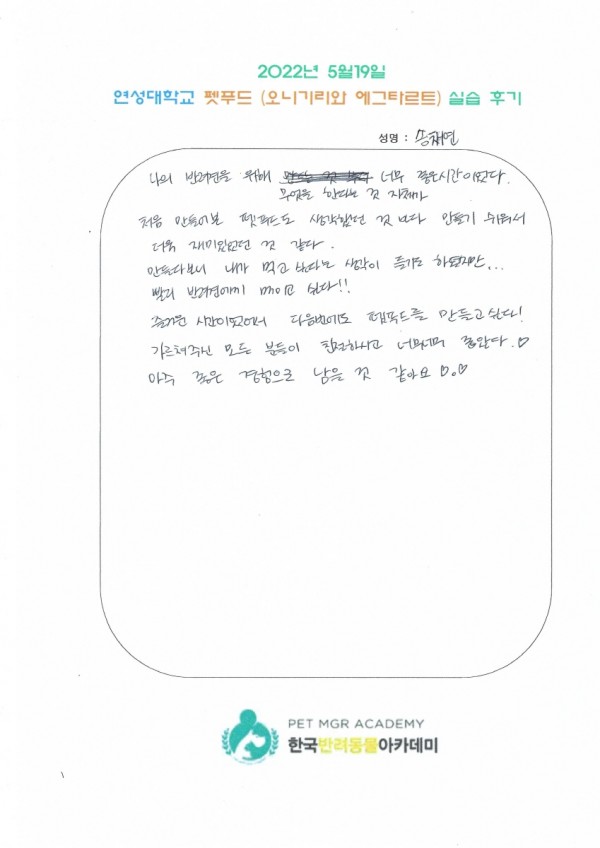 2022년 5월19일
연성대학교 펫푸드 (오니기리와 에그타르트) 실습 후기
성명 : 송채연
나의 반려견을 위해 너무 좋은시간이었다.
무엇을 한다는 것 자체가
처음 만들어본 펫푸드도 생각했던 것 보다 만들기 쉬워서
더욱 재미있었던 것 같다.
만들다보니 내가 먹고 싶다는 생각이 들기도 하였지만...
빨리 반려견에게 먹이고 싶다!!
즐거운 시간이었어서 다음번에도 펫푸드를 만들고싶다!
가르쳐주신 모든 분들이 친절하시고 너무너무 좋았다.♡
아주 좋은 경험으로 남을 것 같아요 ♡.♡
PET MGR ACADEMY
한국반려동물아카데미